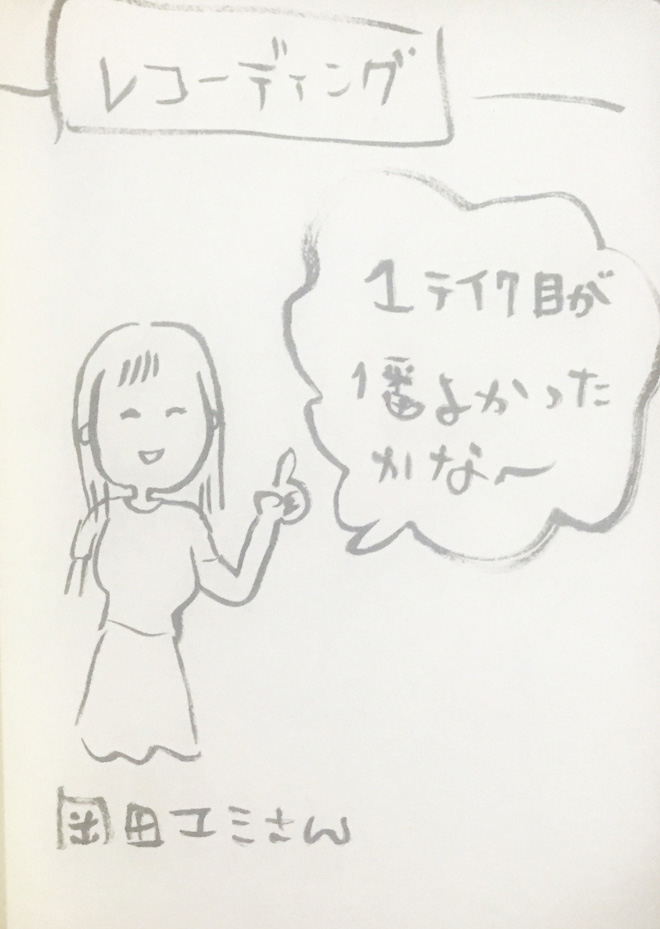 レコーディング
1テイク目が
1番よかった
かな〜
岡田ユミさん